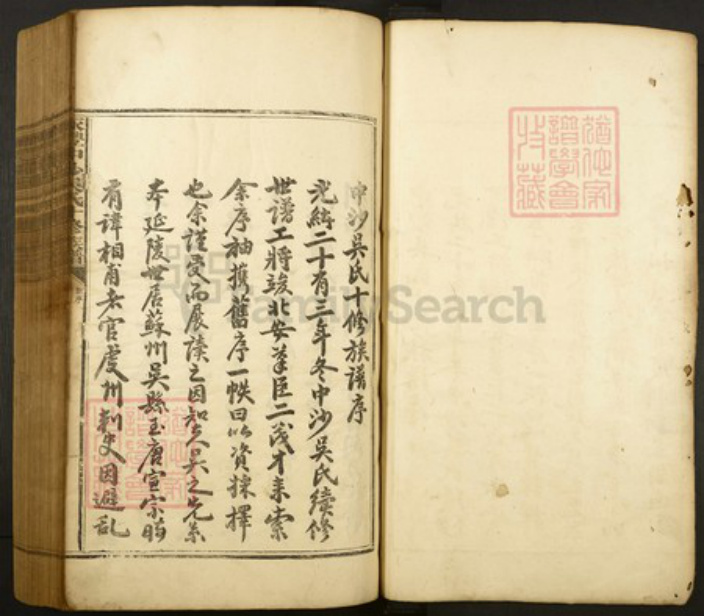 中沙吳氏十修族譜序
光緒二十有三年冬中沙吳氏續修
世譜工將竣北安筆臣二茂才來索
余序袖攜舊序一帙曰以資採擇
也余謹受而展讀之因知吳之先系
本延陵世居蘇州吳縣至唐宣宗時
有諱相甫者官虔州刺史因避乱
FamilySearch
譜學會
收藏